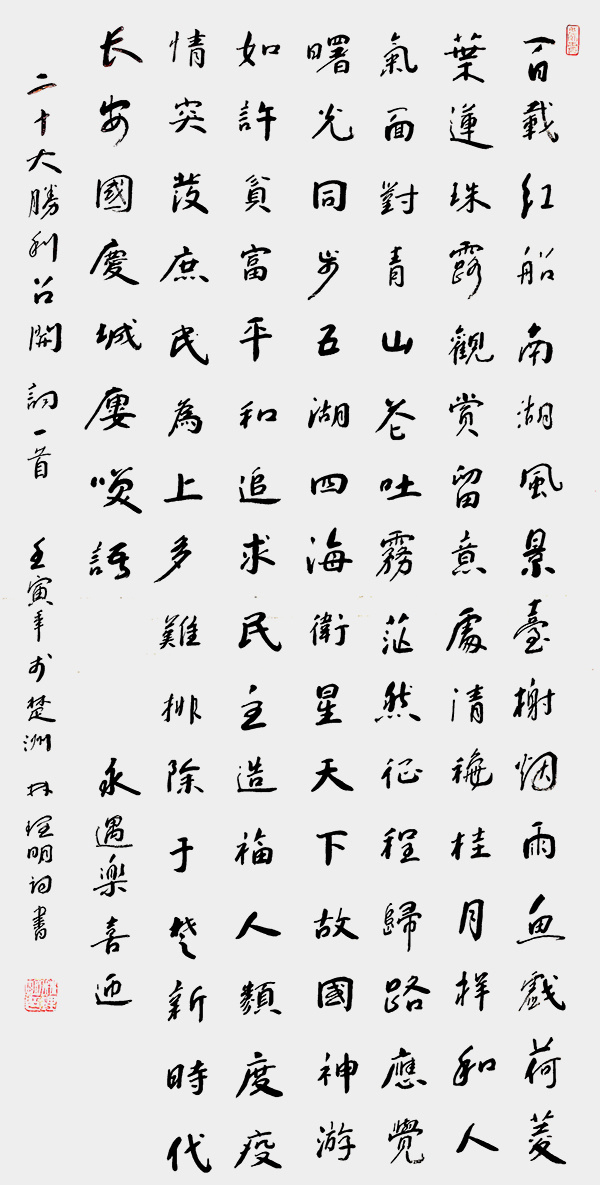 百載红船南湖風景臺榭烟雨魚戲荷菱
葉蓮珠露觀賞留意處清桂月祥和人
氣面對青山花吐霧茫然征程歸路應覺
曙光同步五湖四海衛星天下故國神游
如許貧富平和追求民主造福人類度疫
情突发庶民為上多難排除于楚新時代
长安國慶城廔喚語永遇樂喜迎
二十大勝利召開詞一首 壬寅年於楚洲 林理明词書